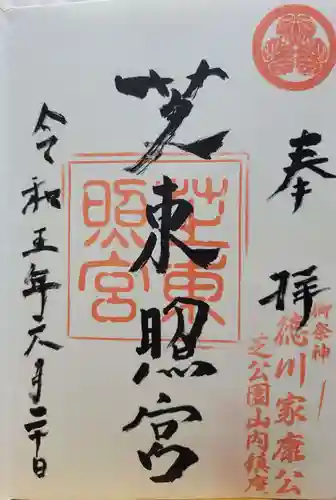 奉拝
御祭神
徳川家康公
芝公園山内鎮座
芝東照宮
芝東照宮
令和五年六月二十日